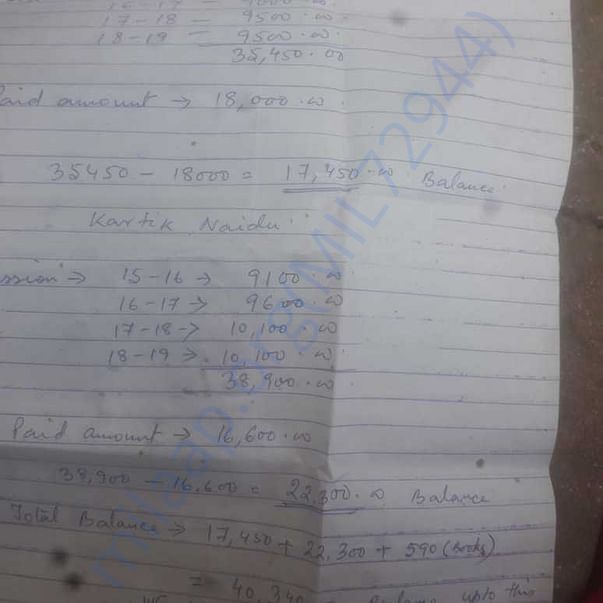 16-17 = 9000.00
17-18 = 9500.00
18-19 = 9500.00
35,450.00
Paid amount → 18,000.00
35450 - 18000 = 17,450.00 Balance.
Kartik Naidu
ssion → 15-16 → 9100.00
16-17 → 9600.00
17-18 → 10,100.00
18-19 → 10,100.00
38,900.00
Paid amount → 16,600.00
38,900 - 16,600 = 22,300.00 Balance
Total Balance → 17,450 + 22,300 + 590 (Books)
= 40,340 upto this
milaap.org(MIL72944)